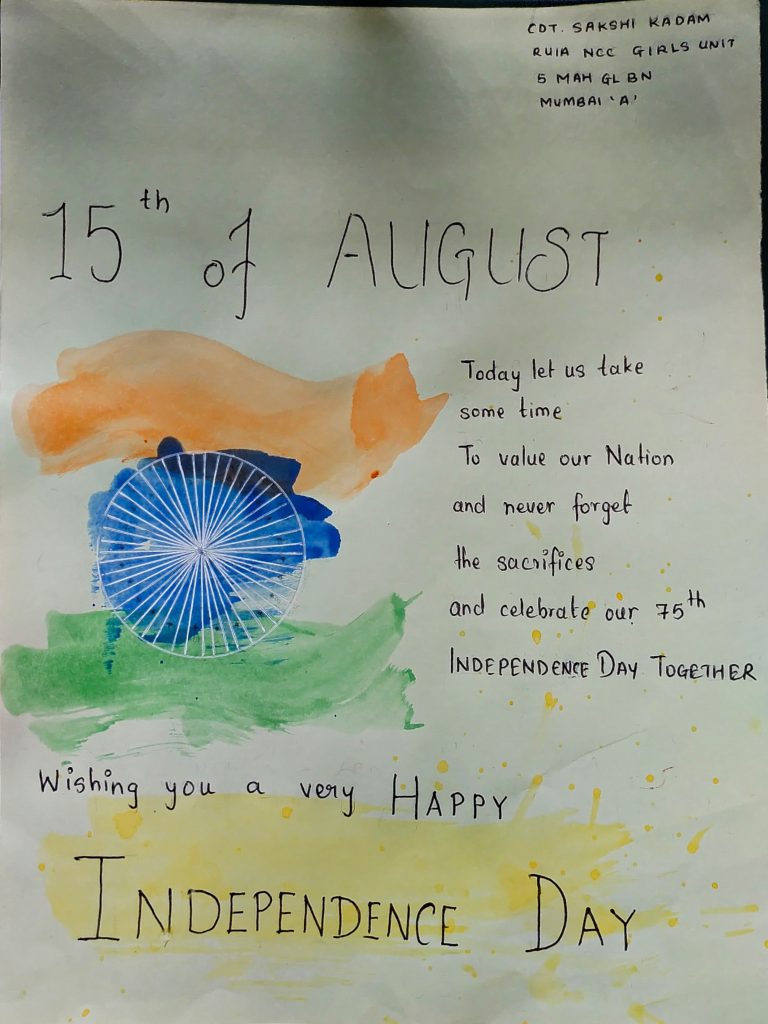 CDT. SAKSHI KADAM
RUIA NCC GIRLS UNIT
5 MAH GL BN
MUMBAI 'A'
15th of AUGUST
Today let us take
some time
To value our Nation
and never forget
the sacrifices
and celebrate our 75th
INDEPENDENCE DAY TOGETHER
Wishing you a very HAPPY
INDEPENDENCE DAY